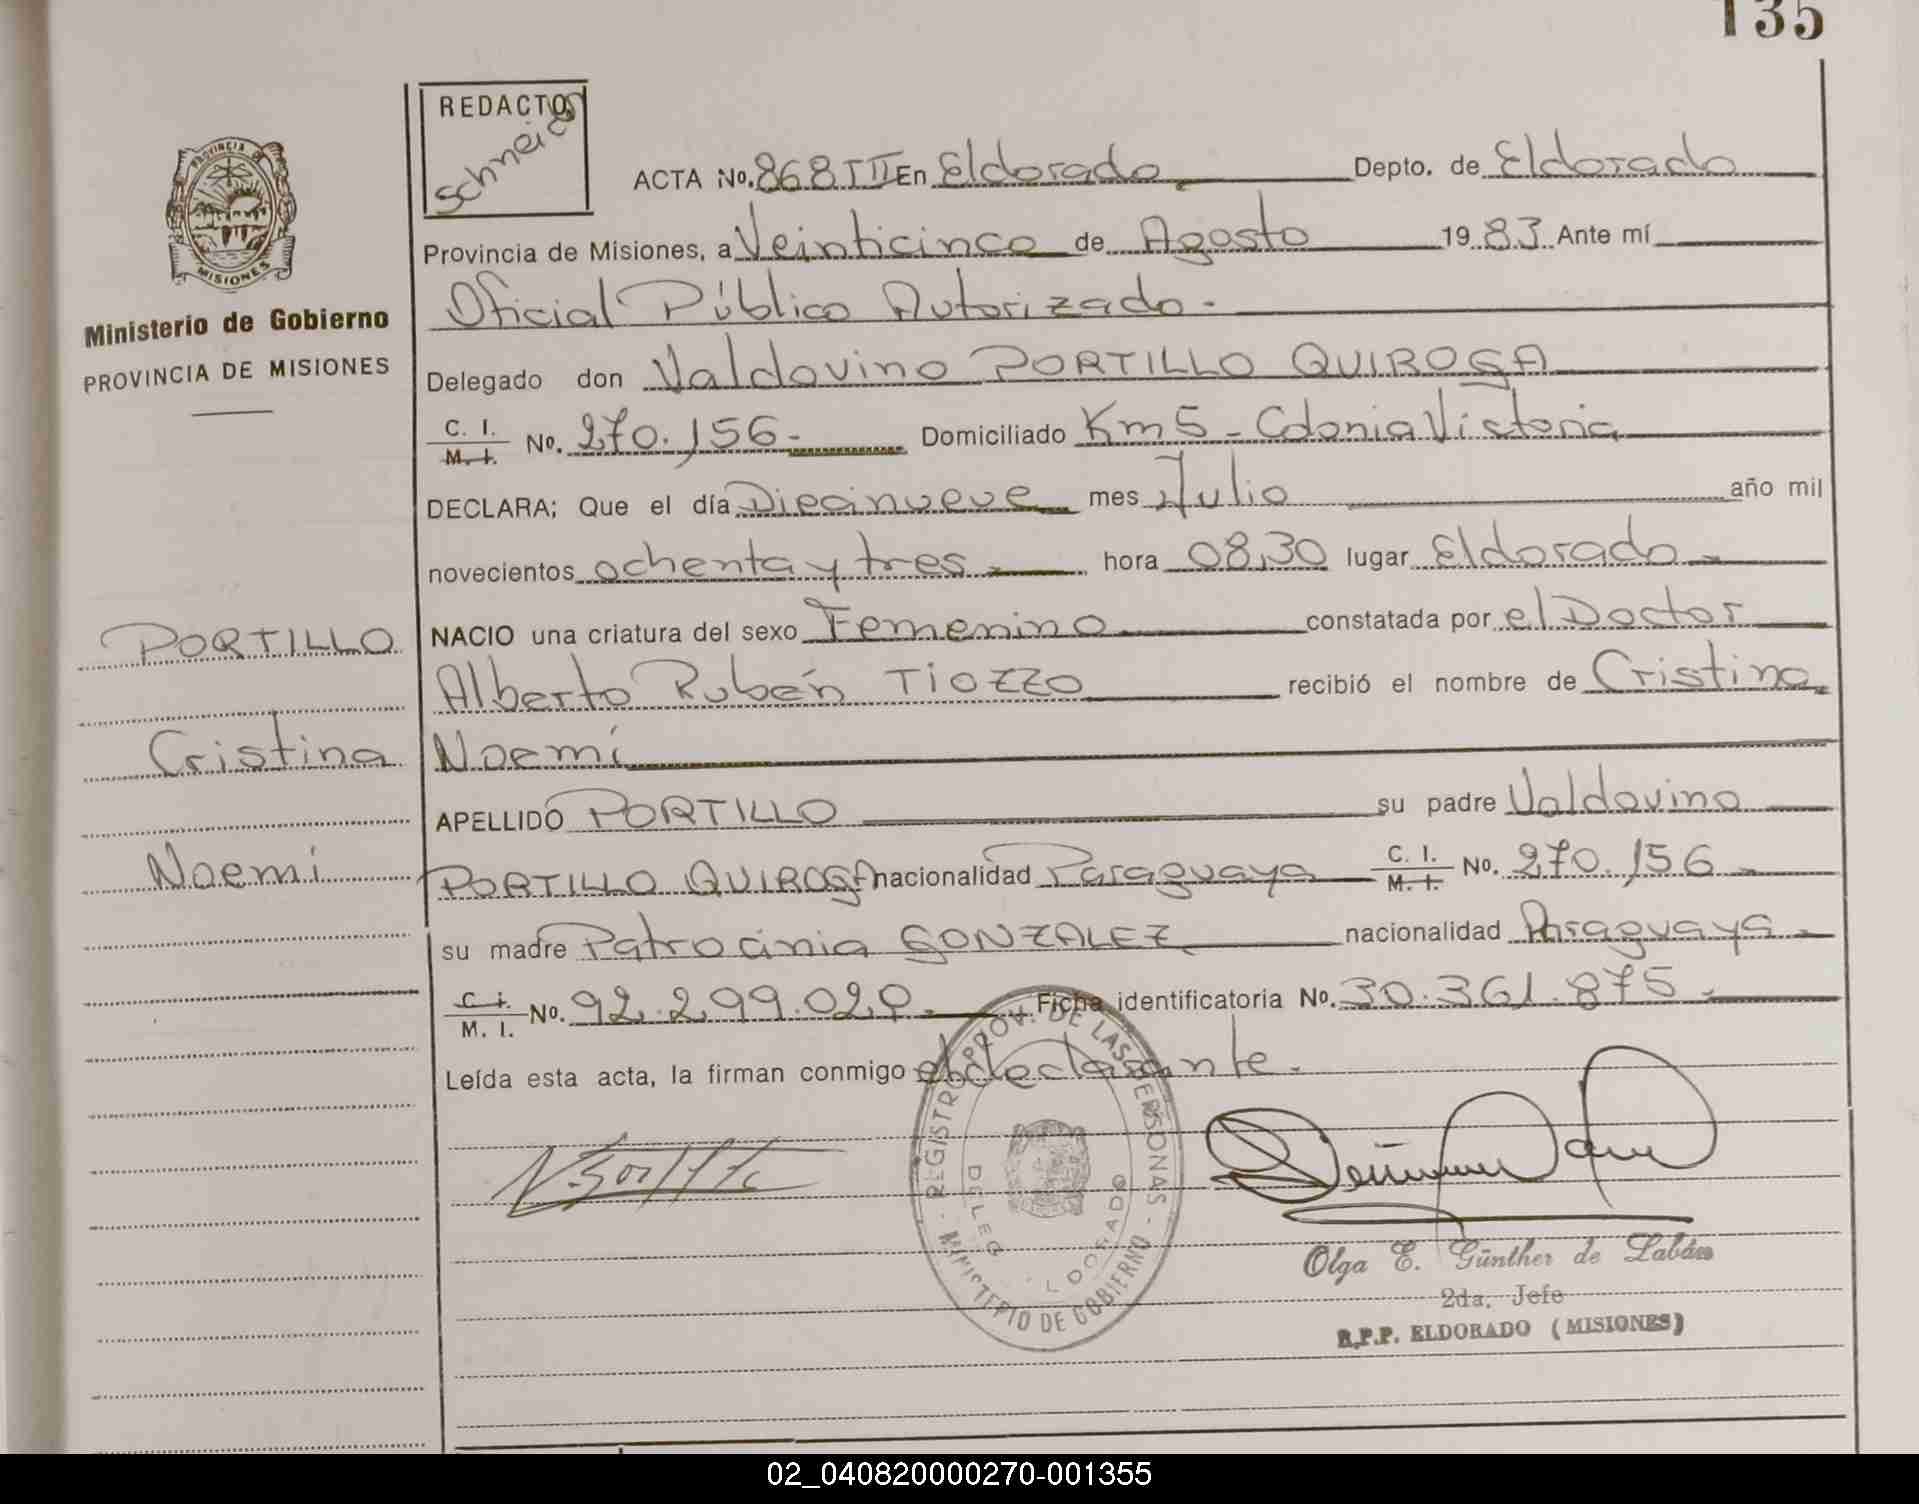 135
REDACTO
Schneider
PROVINCIA DE
MISIONES
Ministerio de Gobierno
PROVINCIA DE MISIONES
ACTA No. 868 T II En Eldorado Depto. de Eldorado
Provincia de Misiones, a Veinticinco de Agosto 19 83 Ante mí
Oficial Público Autorizado.
Delegado don Valdovino PORTILLO QUIROGA
C. I. M. I. No. 270.156 Domiciliado Km 5 - Colonia Victoria
DECLARA; Que el día Diecinueve mes Julio año mil
novecientos ochenta y tres hora 08,30 lugar Eldorado
PORTILLO NACIO una criatura del sexo Femenino constatada por el Doctor
Alberto Rubén TIOZZO recibió el nombre de Cristina
Cristina Noemí
APELLIDO PORTILLO su padre Valdovino
Noemí PORTILLO QUIROGA nacionalidad Paraguaya C. I. M. I. No. 270.156
su madre Patrocinia GONZALEZ nacionalidad Paraguaya
C. I. M. I. No. 92.299.020 Ficha identificatoria No. 30.361.875
Leída esta acta, la firman conmigo el declarante.
REGISTRO PROV. DE LAS PERSONAS
MINISTERIO DE GOBIERNO
Olga E. Günther de Labán
2da. Jefe
R.P.P. ELDORADO (MISIONES)
02_040820000270-001355